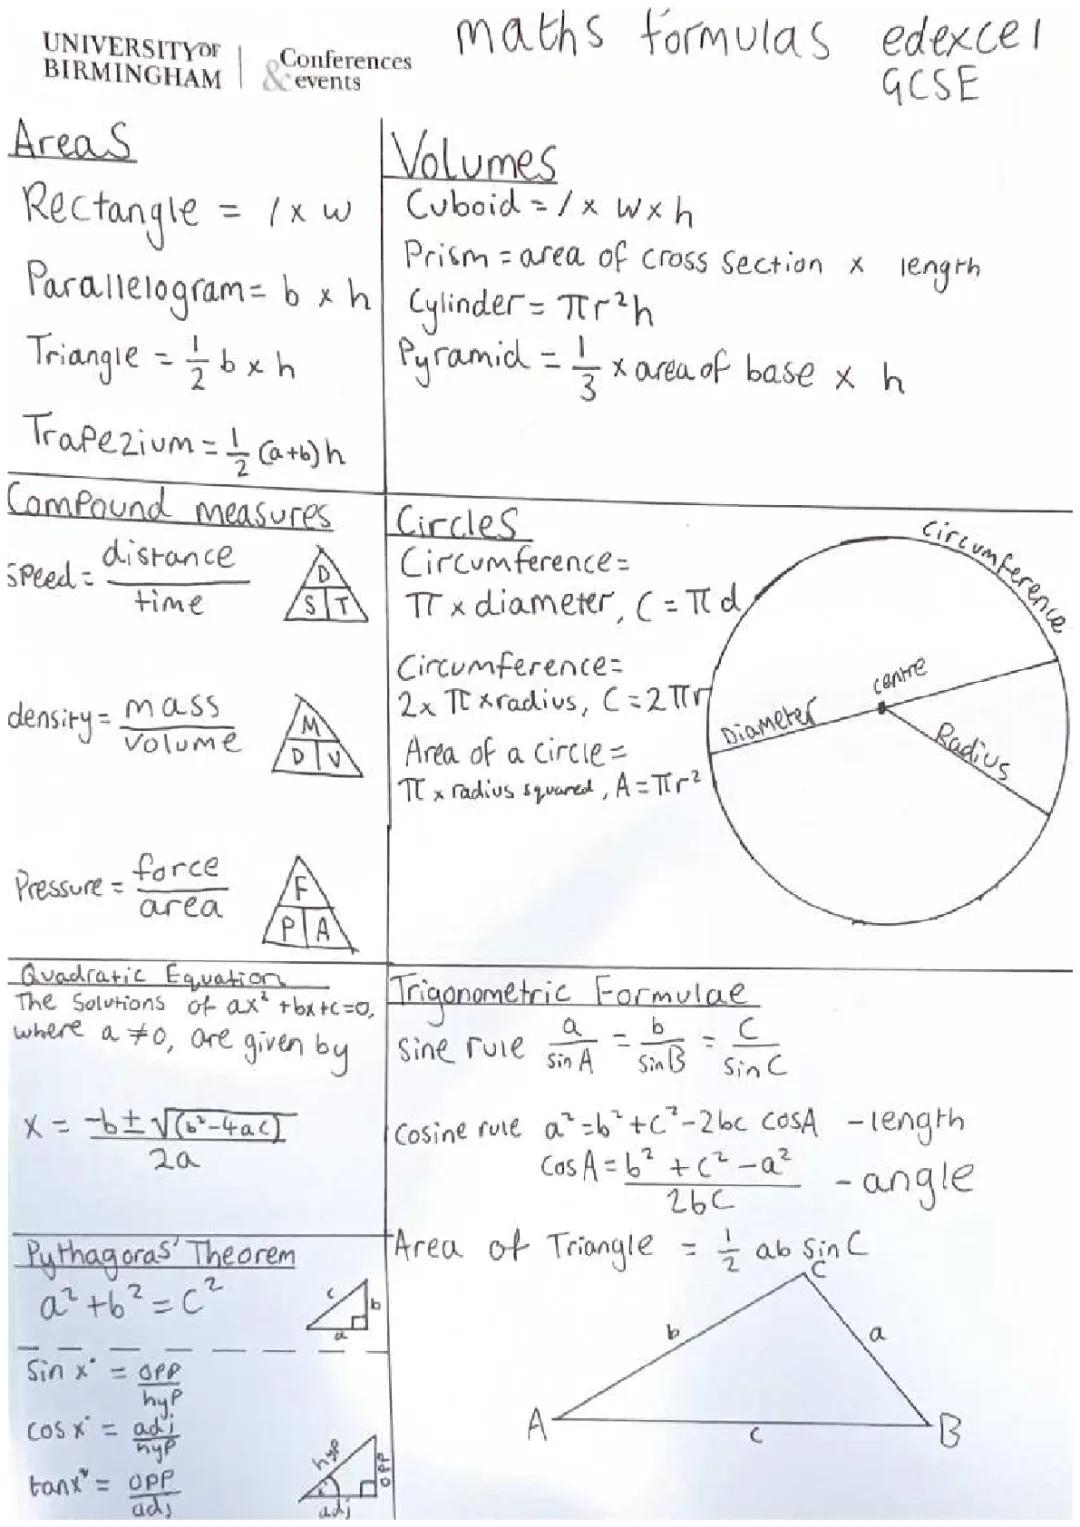 maths formulas edexcel
GCSE
UNIVERSITY OF
BIRMINGHAM
Conferences
& events
Areas
Rectangle = l x w
Parallelogram = b x h
Triangle = 1/2 b x h
Trapezium = 1/2 (a+b)h
Volumes
Cuboid = l x w x h
Prism = area of cross section x length
Cylinder = πr²h
Pyramid = 1/3 x area of base x h
Compound measures
Speed = distance/time
D
S T
density = mass/volume
M
D V
Pressure = force/area
F
P A
Circles
Circumference =
π x diameter, C = πd
Circumference =
2 x π x radius, C = 2πr
Area of a circle =
π x radius squared, A = πr²
circumference
centre
Diameter
Radius
Quadratic Equation
The Solutions of ax² + bx + c = 0,
where a ≠ 0, are given by
x = -b ± √(b²-4ac)
2a
Trigonometric Formulae
sine rule a/sin A = b/sin B = c/sin C
Cosine rule a² = b² + c² - 2bc cosA - length
cos A = b² + c² - a² - angle
2bc
Area of Triangle = 1/2 ab sin C
C
b
a
A
c
B
Pythagoras' Theorem
a² + b² = c²
c
b
a
Sin x° = opp/hyp
cos x° = adj/hyp
tan x° = opp/adj
hyp
opp
adj